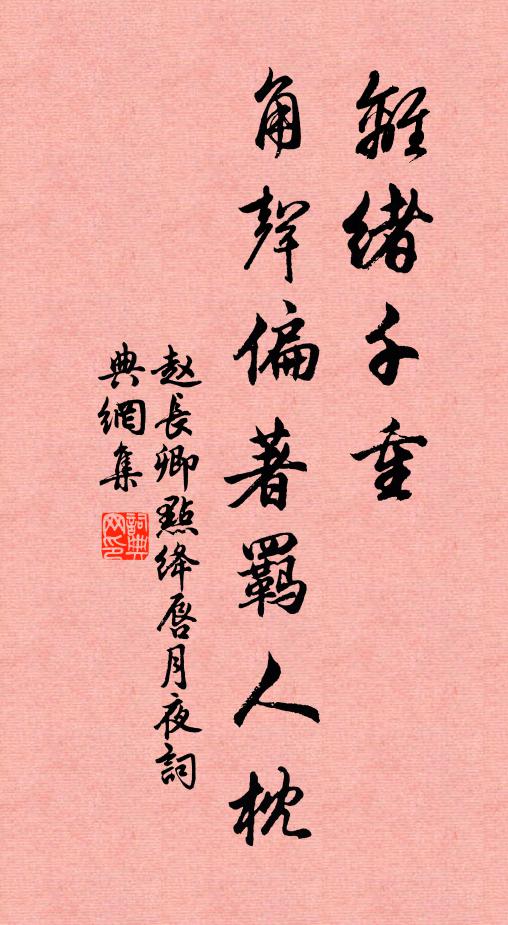 離緒千重
角聲偏著羈人枕
赵長卿點绛唇月夜詞
典網集
詞典网印